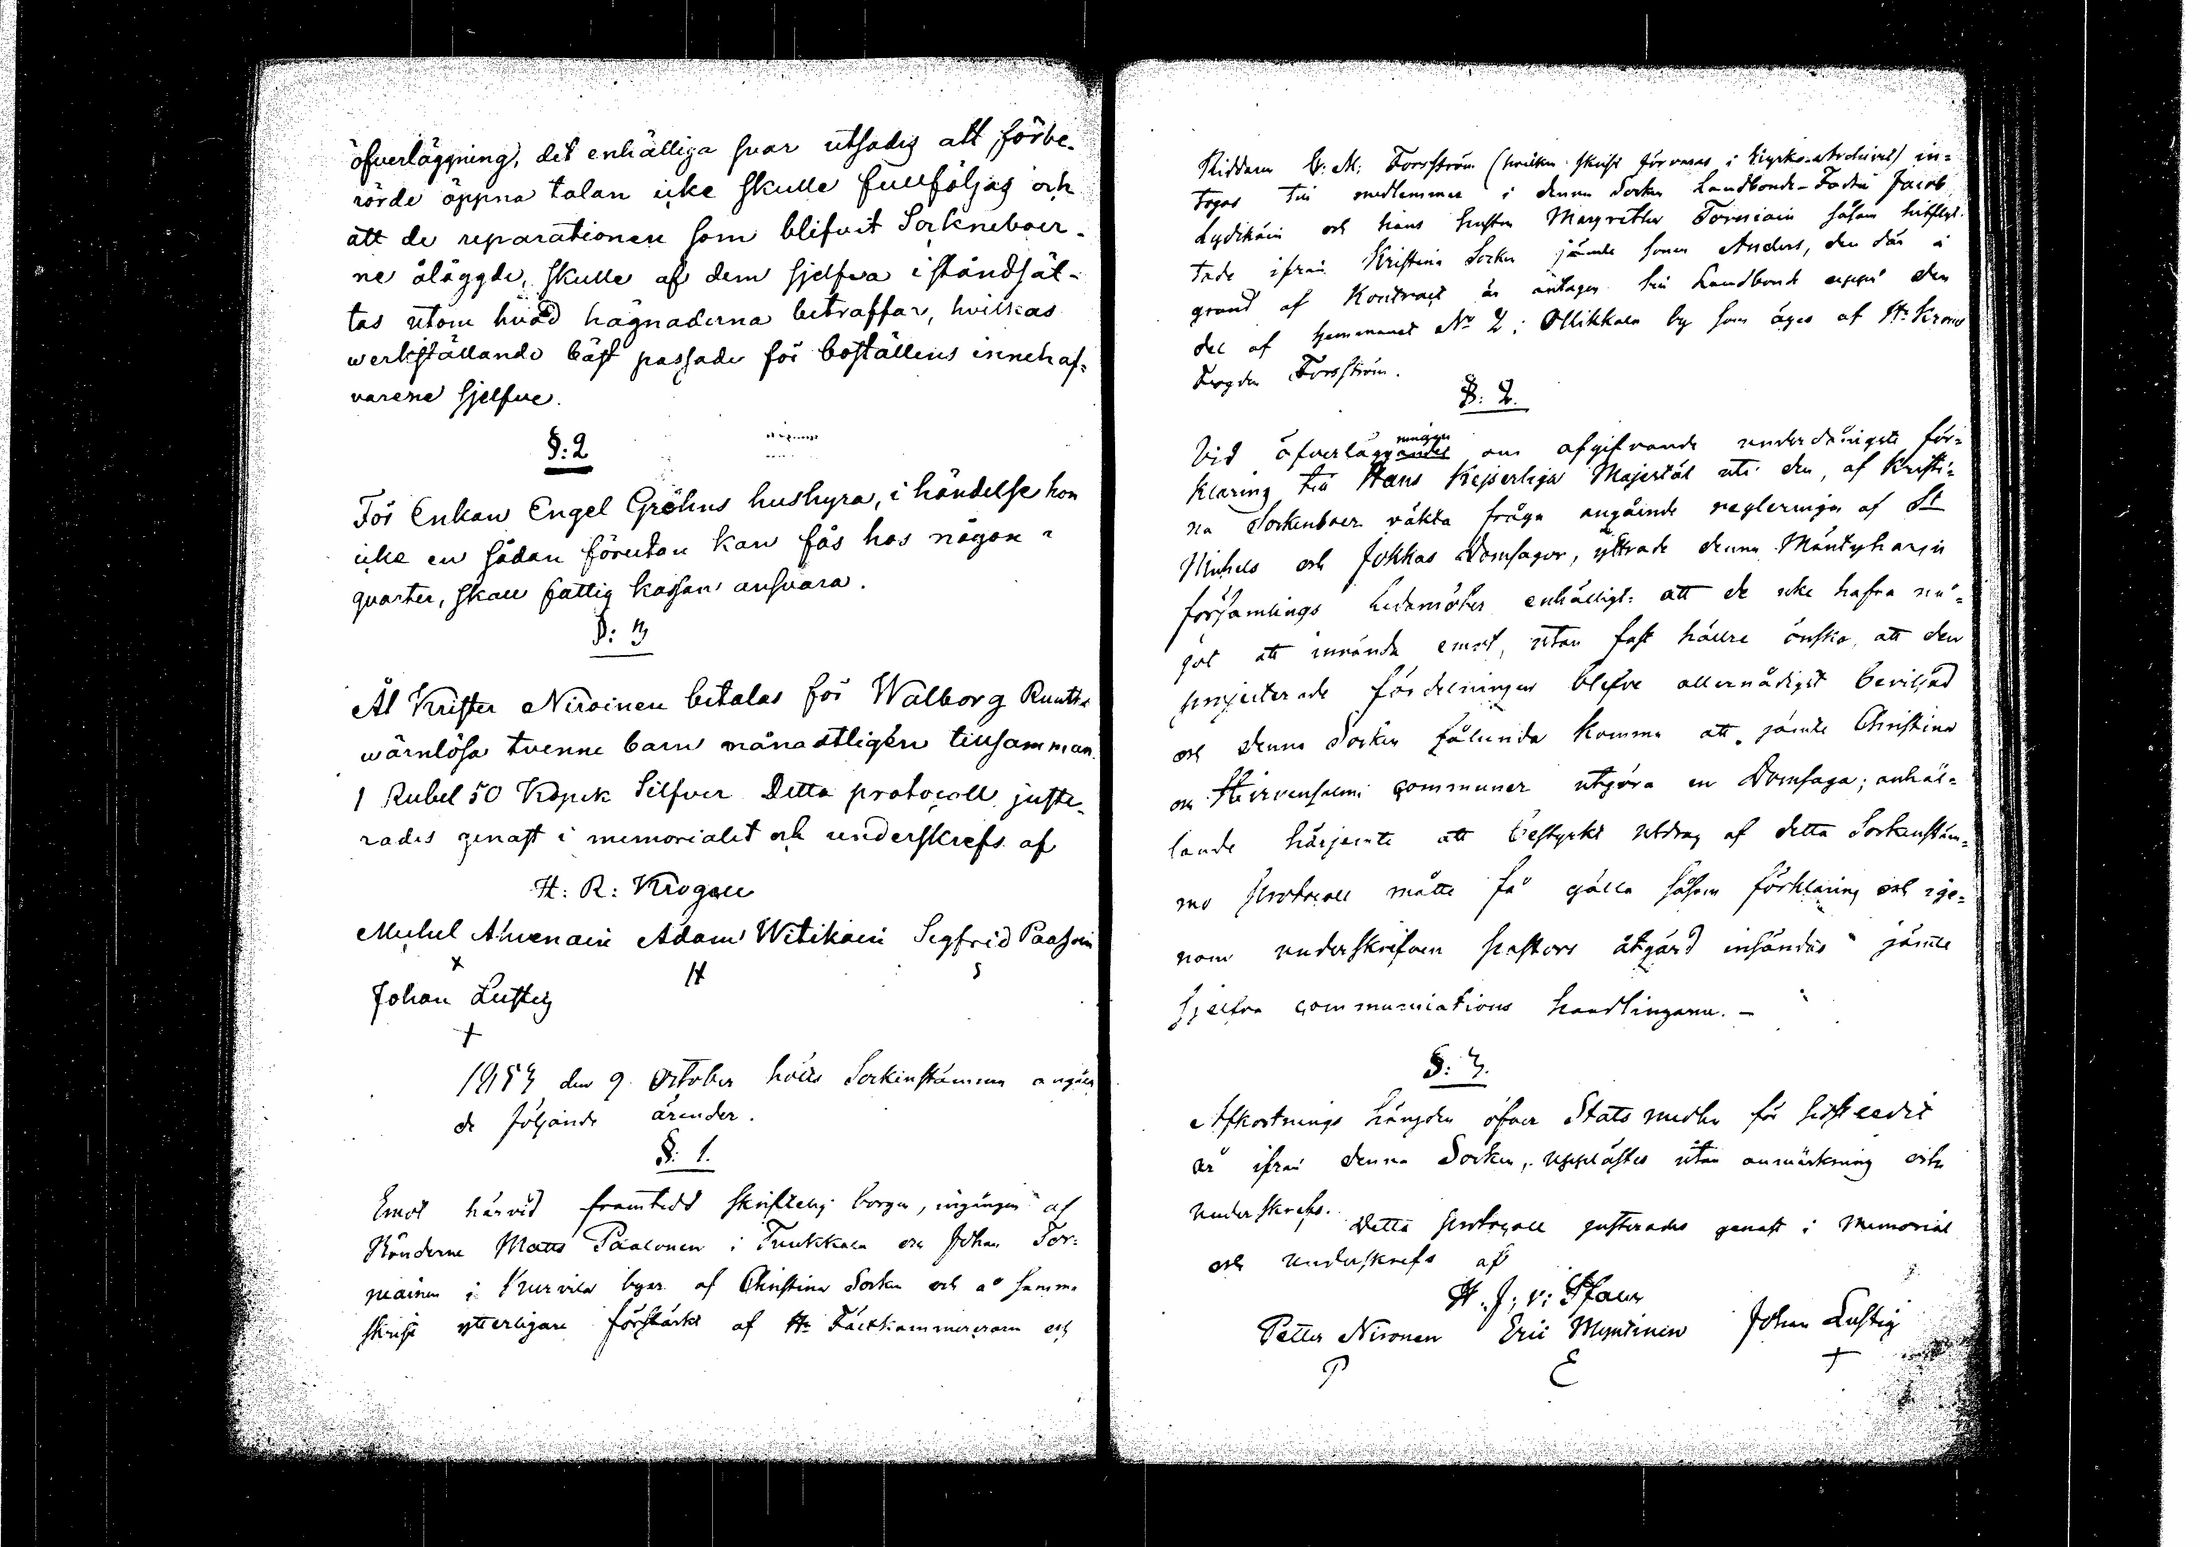 öfverläggning, det enhälliga svar utsades att förbe-
rörde öppna talan icke skulle fullföljas och
att de reparationen som blifvit Sockneboer-
ne ålagde, skulle af dem sjelfva i ståndsät-
tas utom hvad hägnaderna beträffar, hvilkas
werkställande bäst passade för boställens innehaf-
varene sjelfve.
§: 2
För Enkan Engel Gröhns hushyra, i händelse hon
icke en sådan förutan kan fås hos någon i
qvarter, skall fattig kassan ansvara.
§: 3
Åt Krister Niroinen betalas för Walborg Runtts
wärnlösa tvenne barn månadtligen tillsamman
1 Rubel 50 Kopek Silfver. Detta protocoll juste-
rades genast i memorialet och underskrefs af
H: R: Krogell
Michel Ahvenain Adam Witikain Sigfrid Paasoin
x H S
Johan Lustig
+
1854 den 9 October hölls Sockenstämma angåen
de följande ärender.
§: 1.
Emot härvid framtedd skriftelig borgen, ingången af
Bönderne Matts Paalonen i Tuukkala och Johan Tor-
niainen i Kurvila byar af Christina Socken och å samma
skrift ytterligare förstärkt af Hr Häradskammereraren och
Riddaren G: M: Forsström (hvilken skrift förvaras i Kyrko-Archivet) in-
togos till medlemmar i denna Socken Landbonde-Foden Jacob
Lydikäin och hans hustru Margretha Torniain såsom hitflyt-
tade ifrån Kristina Socken jämte sonen Anders, den där å
grund af Kontract är antagen till Landbonde uppå den
del af hemmanet No 2 i Ollikkala by som äges af Hr Krono
Fogden Forsström.
§: 2.
Vid öfverläggningen om afgifvande underdånigste för-
klaring till Hans Kejserliga Majestät uti den, af Kristi-
na Sockenboer väkta fråga angående regleringen af St
Michels och Jokkas Domsagor, yttrade denna Mäntyharju
församlings Ledamöter enhälligt: att de icke hafva nå-
got att invända emot, utan fast hällre önska, att den
projecterade fördelningen blefve allernådigst beviljad
och denna Socken sålunda komma att jämte Christina
och Hirvensalmi communer utgöra en Domsaga; anhål-
lande härjemte att bestyrkt utdrag af detta Sockenstäm-
mo protocoll måtte få gälla såsom förklaring och ige-
nom underskrifven pastors åtgärd insändas jämte
sjelfva communications handlingarne. -
§: 3.
Afkortnings längden öfver Stats medlen för sistledit
år ifrån denna Socken, upplästes utan anmärkning och
underskrefs. Detta protocoll justerades genast i memorial
och underskrefs af
H. J: v: Pfaler
Petter Nironen Eric Myntinen Johan Lustig
P E +